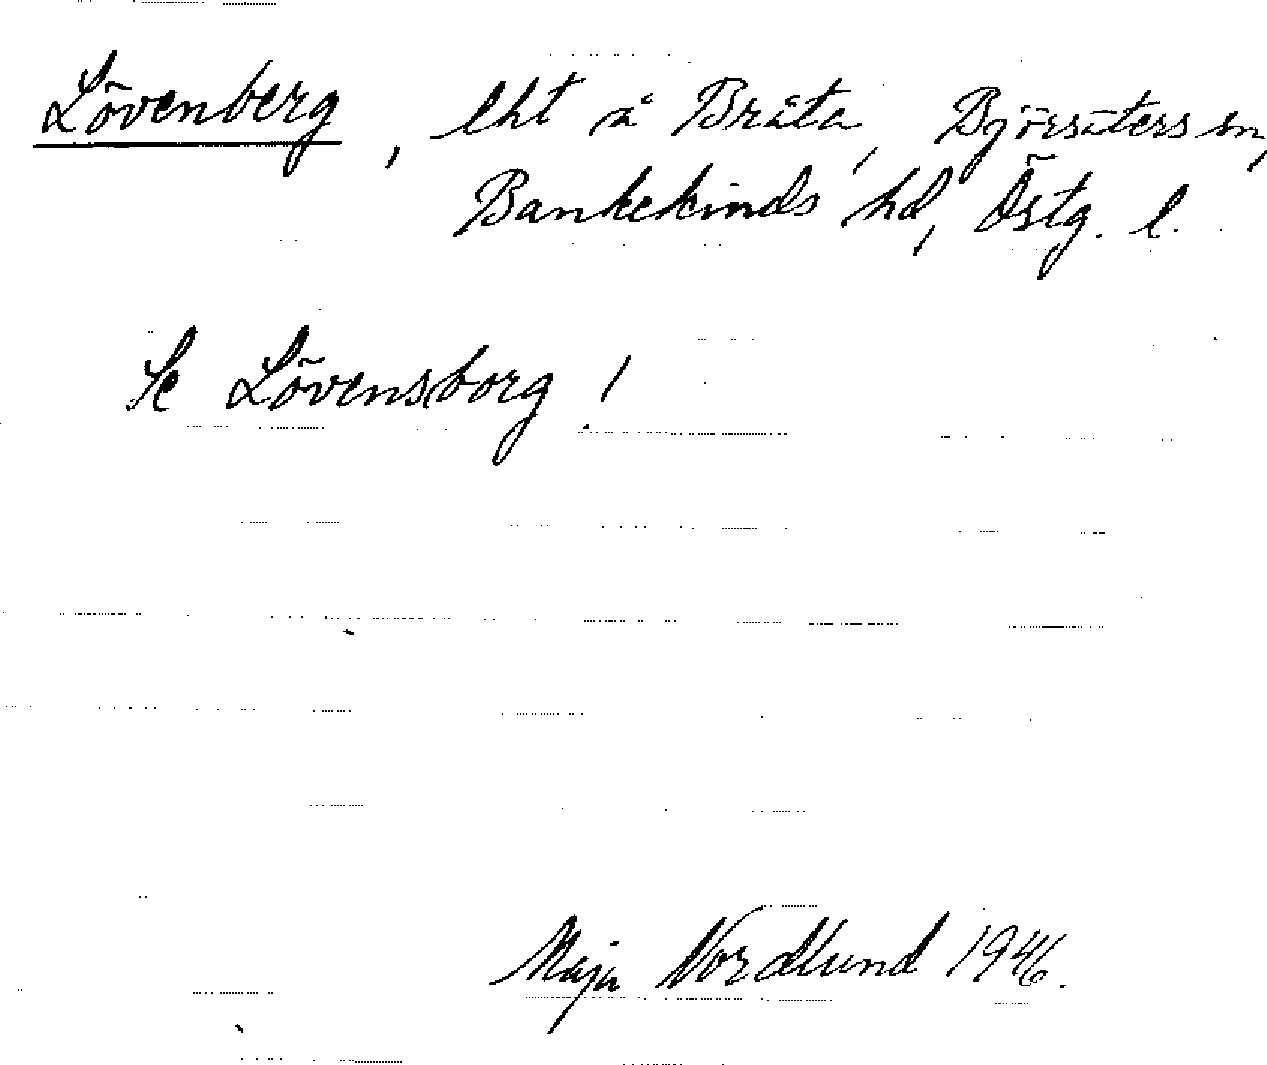 Lövenberg, lht å Bråta, Björsäters sn,
Bankekinds hd, Östg. l.
Se Lövensborg!
Maja Nordlund 1946.